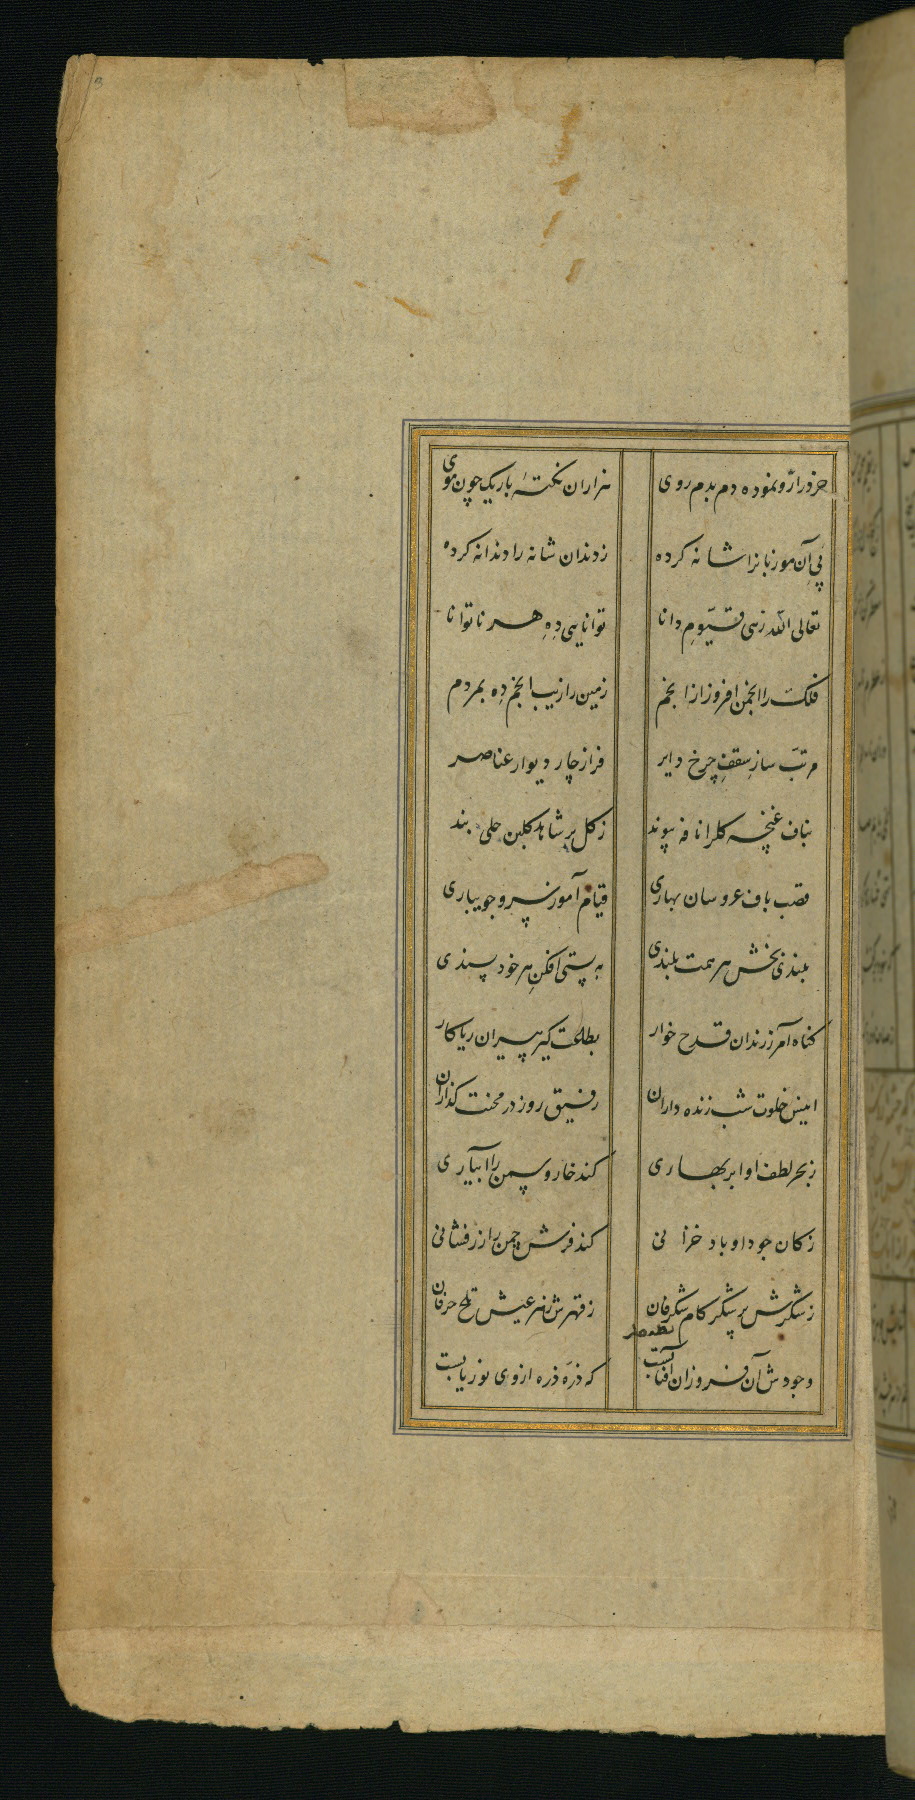 خرد را زو نموده دم بدم روی هزاران نکتهٔ باریک چون موی
پی آن مو زبانرا شانه کرده ز دندان شانه را دندانه کرده
تعالی الله زهی قیّومِ دانا توانایی دِهِ هر ناتوانا
فلک را انجمن افروز از انجم زمین را زیب انجم دِه بمردم
مرتبّ سازِ سقفِ چرخ دایر فراز چار دیوار عناصر
بناف غنچه گلرا نافه پیوند ز گل بر شاهد گلبن حلی بند
قصب باف عروسان بهاری قیام آموز سرو جویباری
بلندی بخش هر همت بلندی به پستی افکنِ هر خود پسندی
گناه آمرز رندان قدح خوار بطاعت گیر پیران ریاکار
انیس خلوت شب زنده داران رفیق روز در محنت گذاران
ز بحر لطف او ابر بهاری کند خار و سمن را آبیاری
ز کان جود او باد خزانی کند فرش چمن را زرفشانی
ز شکرش پر شکر کام شکرفان ز قهرش زهر عیش تلخ حرفان
وجودش آن فروزان آفتابست که ذرّه ذره از وی نوریابست